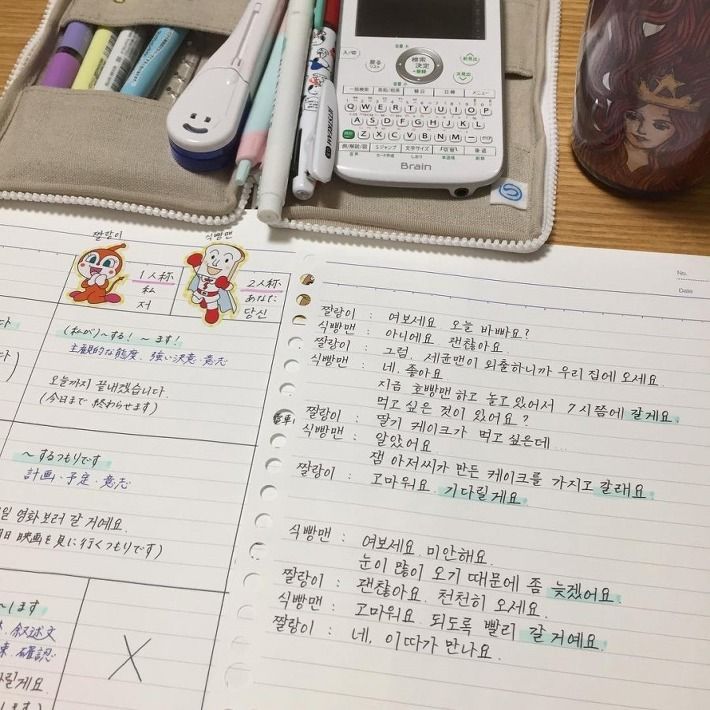 入/切
戻る
検索
決定
一括検索
メニュー
QWERTYUIOP
ASDFGHJKL
ZXCVBNM
文字サイズ
Brain
짤랑이
식빵맨
1人称
私
저
2人称
あなた
당신
(私が)~する! ~ます!
主観的な態度、強い決意・意志
오늘까지 끝내겠습니다.
(今日まで 終わらせます)
~するつもりです
計画・予定・意志
일 영화 보러 갈 거예요.
日 映画を見に行くつもりです)
~します
叙述文
確認
릴게요.
します)
No.
Date
짤랑이 : 여보세요. 오늘 바빠요?
식빵맨 : 아니에요. 괜찮아요.
짤랑이 : 그럼, 세균맨이 외출하니까 우리 집에 오세요.
식빵맨 : 네, 좋아요.
지금 호빵맨하고 놀고 있어서 7시쯤에 갈게요.
먹고 싶은 것이 있어요?
짤랑이 : 딸기 케이크가 먹고 싶은데...
식빵맨 : 알았어요.
잼 아저씨가 만든 케이크를 가지고 갈래요.
짤랑이 : 고마워요. 기다릴게요.
식빵맨 : 여보세요. 미안해요.
눈이 많이 오기 때문에 좀 늦겠어요.
짤랑이 : 괜찮아요. 천천히 오세요.
식빵맨 : 고마워요. 되도록 빨리 갈 거예요.
짤랑이 : 네, 이따가 만나요.